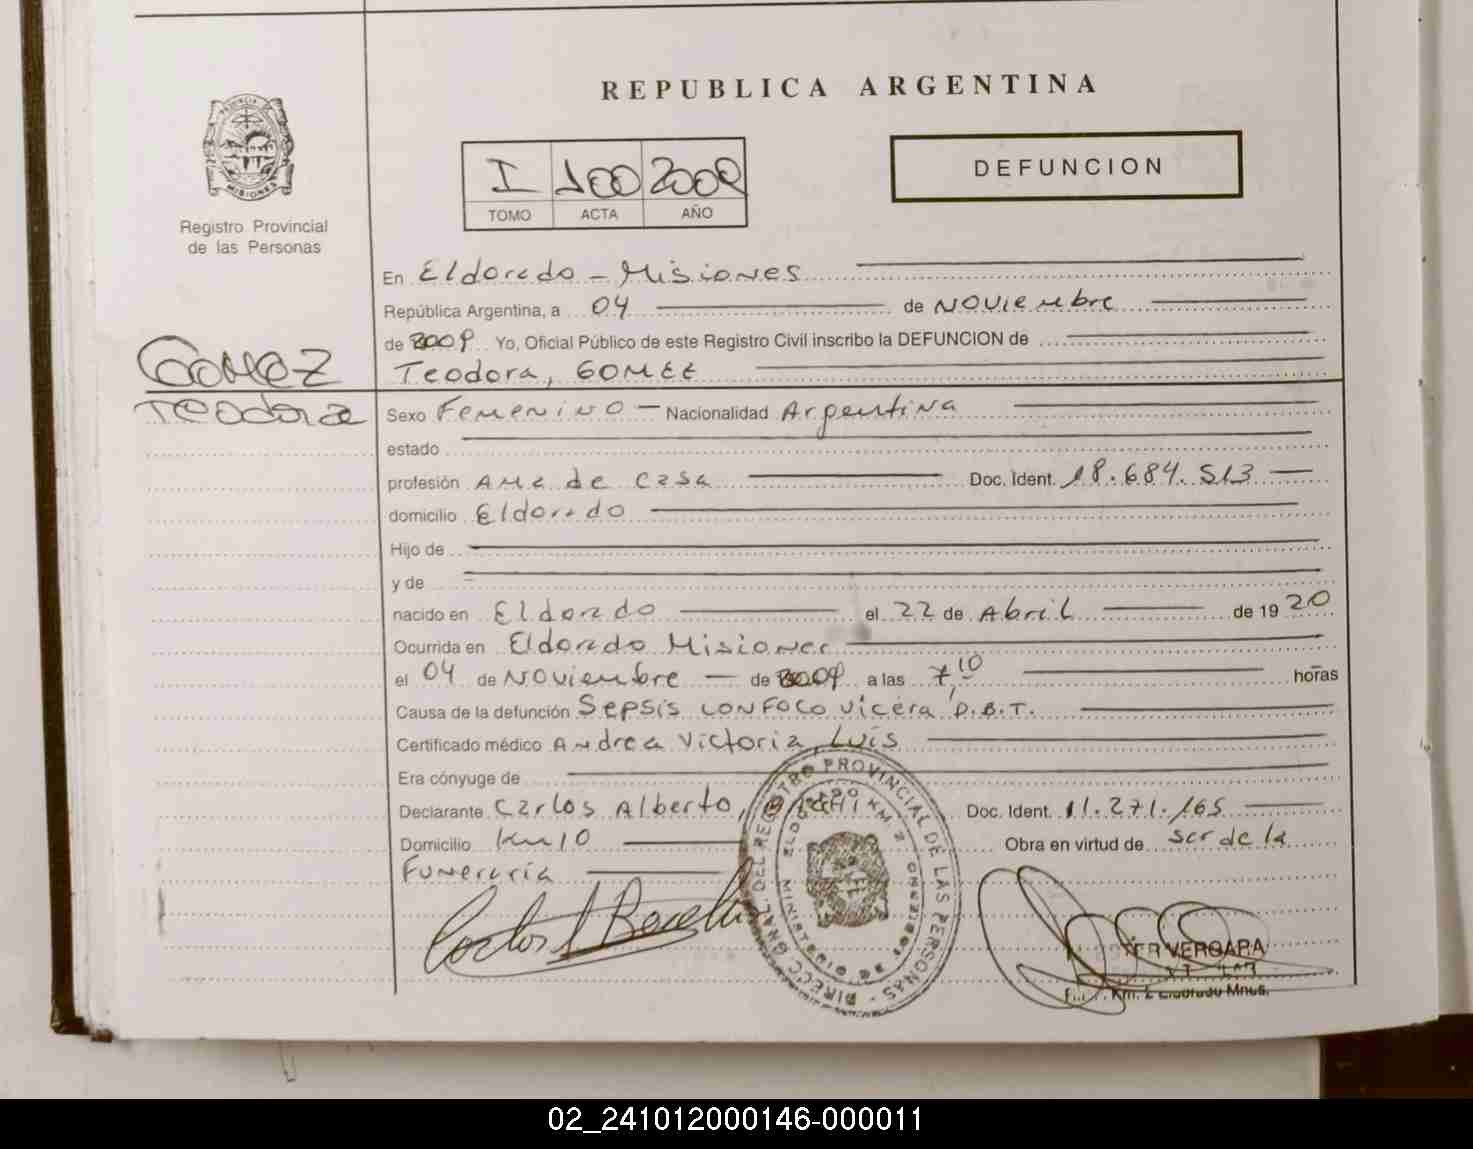 REPUBLICA ARGENTINA
PROVINCIA DE
MISIONES
Registro Provincial
de las Personas
I 100 2009
TOMO ACTA AÑO
DEFUNCION
En Eldorado - Misiones
República Argentina, a 04 de Noviembre
de 2009 Yo, Oficial Público de este Registro Civil inscribo la DEFUNCION de
GOMEZ
Teodora, GOMEZ
Teodora
Sexo Femenino - Nacionalidad Argentina
estado
profesión Ama de casa Doc. Ident. 18.684.513
domicilio Eldorado
Hijo de
y de
nacido en Eldorado el 22 de Abril de 1920
Ocurrida en Eldorado Misiones
el 04 de Noviembre de 2009 a las 7,10 horas
Causa de la defunción Sepsis con foco vicera D.B.T.
Certificado médico Andrea Victoria, Luis
Era cónyuge de
Declarante Carlos Alberto, Doc. Ident. 11.271.165
Domicilio Km 10 Obra en virtud de ser de la
Funeraria
DIRECC. GRAL. DEL REGISTRO PROVINCIAL DE LAS PERSONAS
ELDORADO KM 2
MINISTERIO DE GOBIERNO
VERGARA
Km. 2 Eldorado Mnes.
02_241012000146-000011